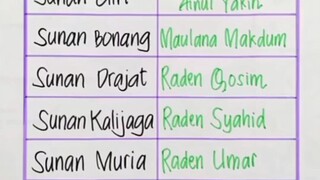 Sunan Giri Ainul Yakin
Sunan Bonang Maulana Makdum
Sunan Drajat Raden Qosim
Sunan Kalijaga Raden Syahid
Sunan Muria Raden Umar